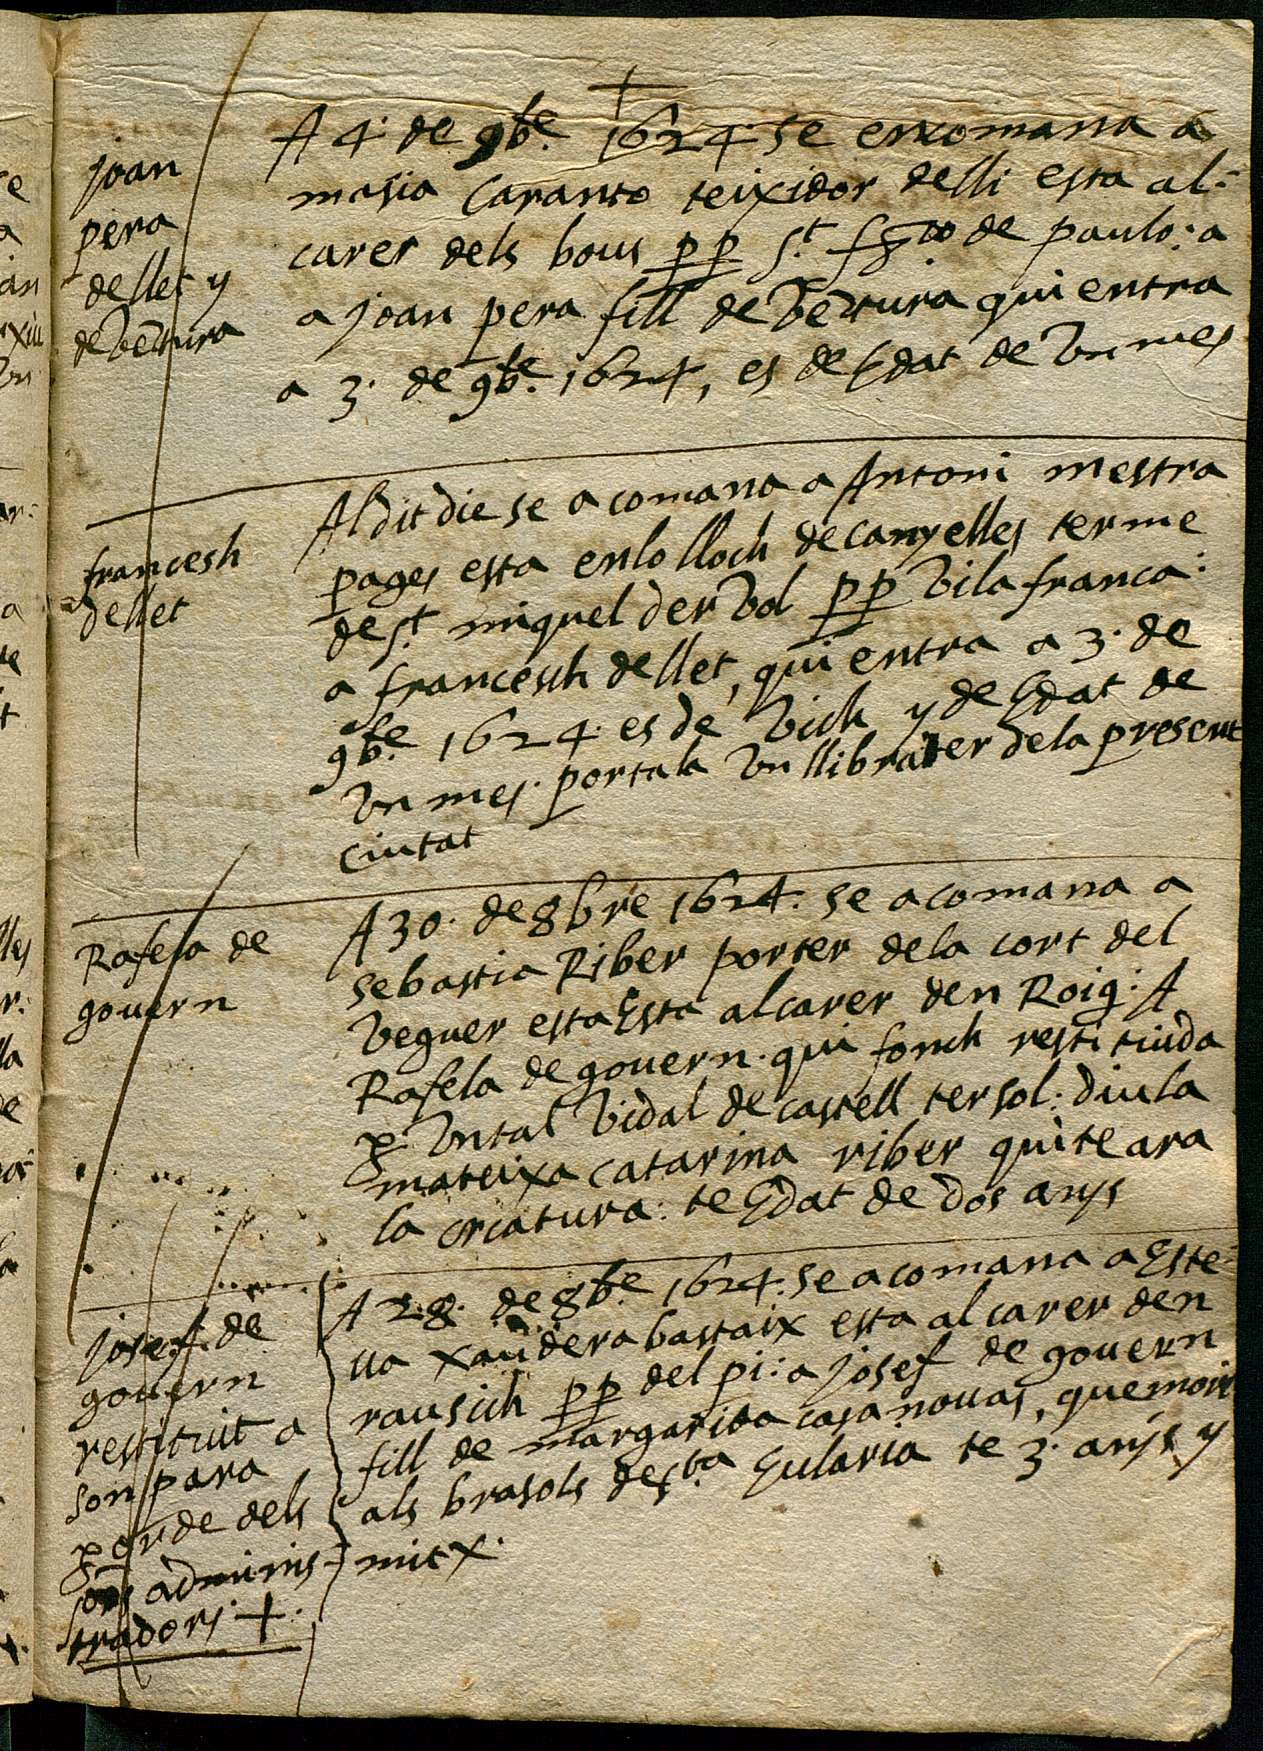 joan
pera
de llet y
de Ventura
A 4. de 9bre. 1624 se encomana a
masia Caranto teixidor delli esta al-
carer dels bous pp St. fco de paulo: a
a joan pera fill de Ventura qui entra
a 3. de 9bre. 1624, es de Edat de Vn mes
francesh
de llet
Al dit die se acomana a Antoni mestra
pages esta en lo lloch de canyelles terme
de St miquel der Vol pp Vila franca:
a francesch de llet, qui entra a 3. de
9bre. 1624. es de Vich y de Edat de
Vn mes. portala Vn llibrater dela present
ciutat
Rafela de
govern
A 30. de 8bre 1624. se acomana a
sebastia Riber porter dela cort del
Veguer esta Esta al carer den Roig: A
Rafela de govern. qui fonch restituida
p. Vntal Vidal de castell tersol. diu la
mateixa catarina riber qui te ara
la criatura: te Edat de dos anys
josef de
govern
restituit a
son para
p orde dels
sors adminis-
tradors. +.
A 28. de 8bre 1624. se acomana a Este-
va xandera bastaix esta al carer den
rausich pp del pi: a josef de govern
fill de margarita casanovas, que mori
als brasols de Sta Eularia te 3. anys y
mitx.